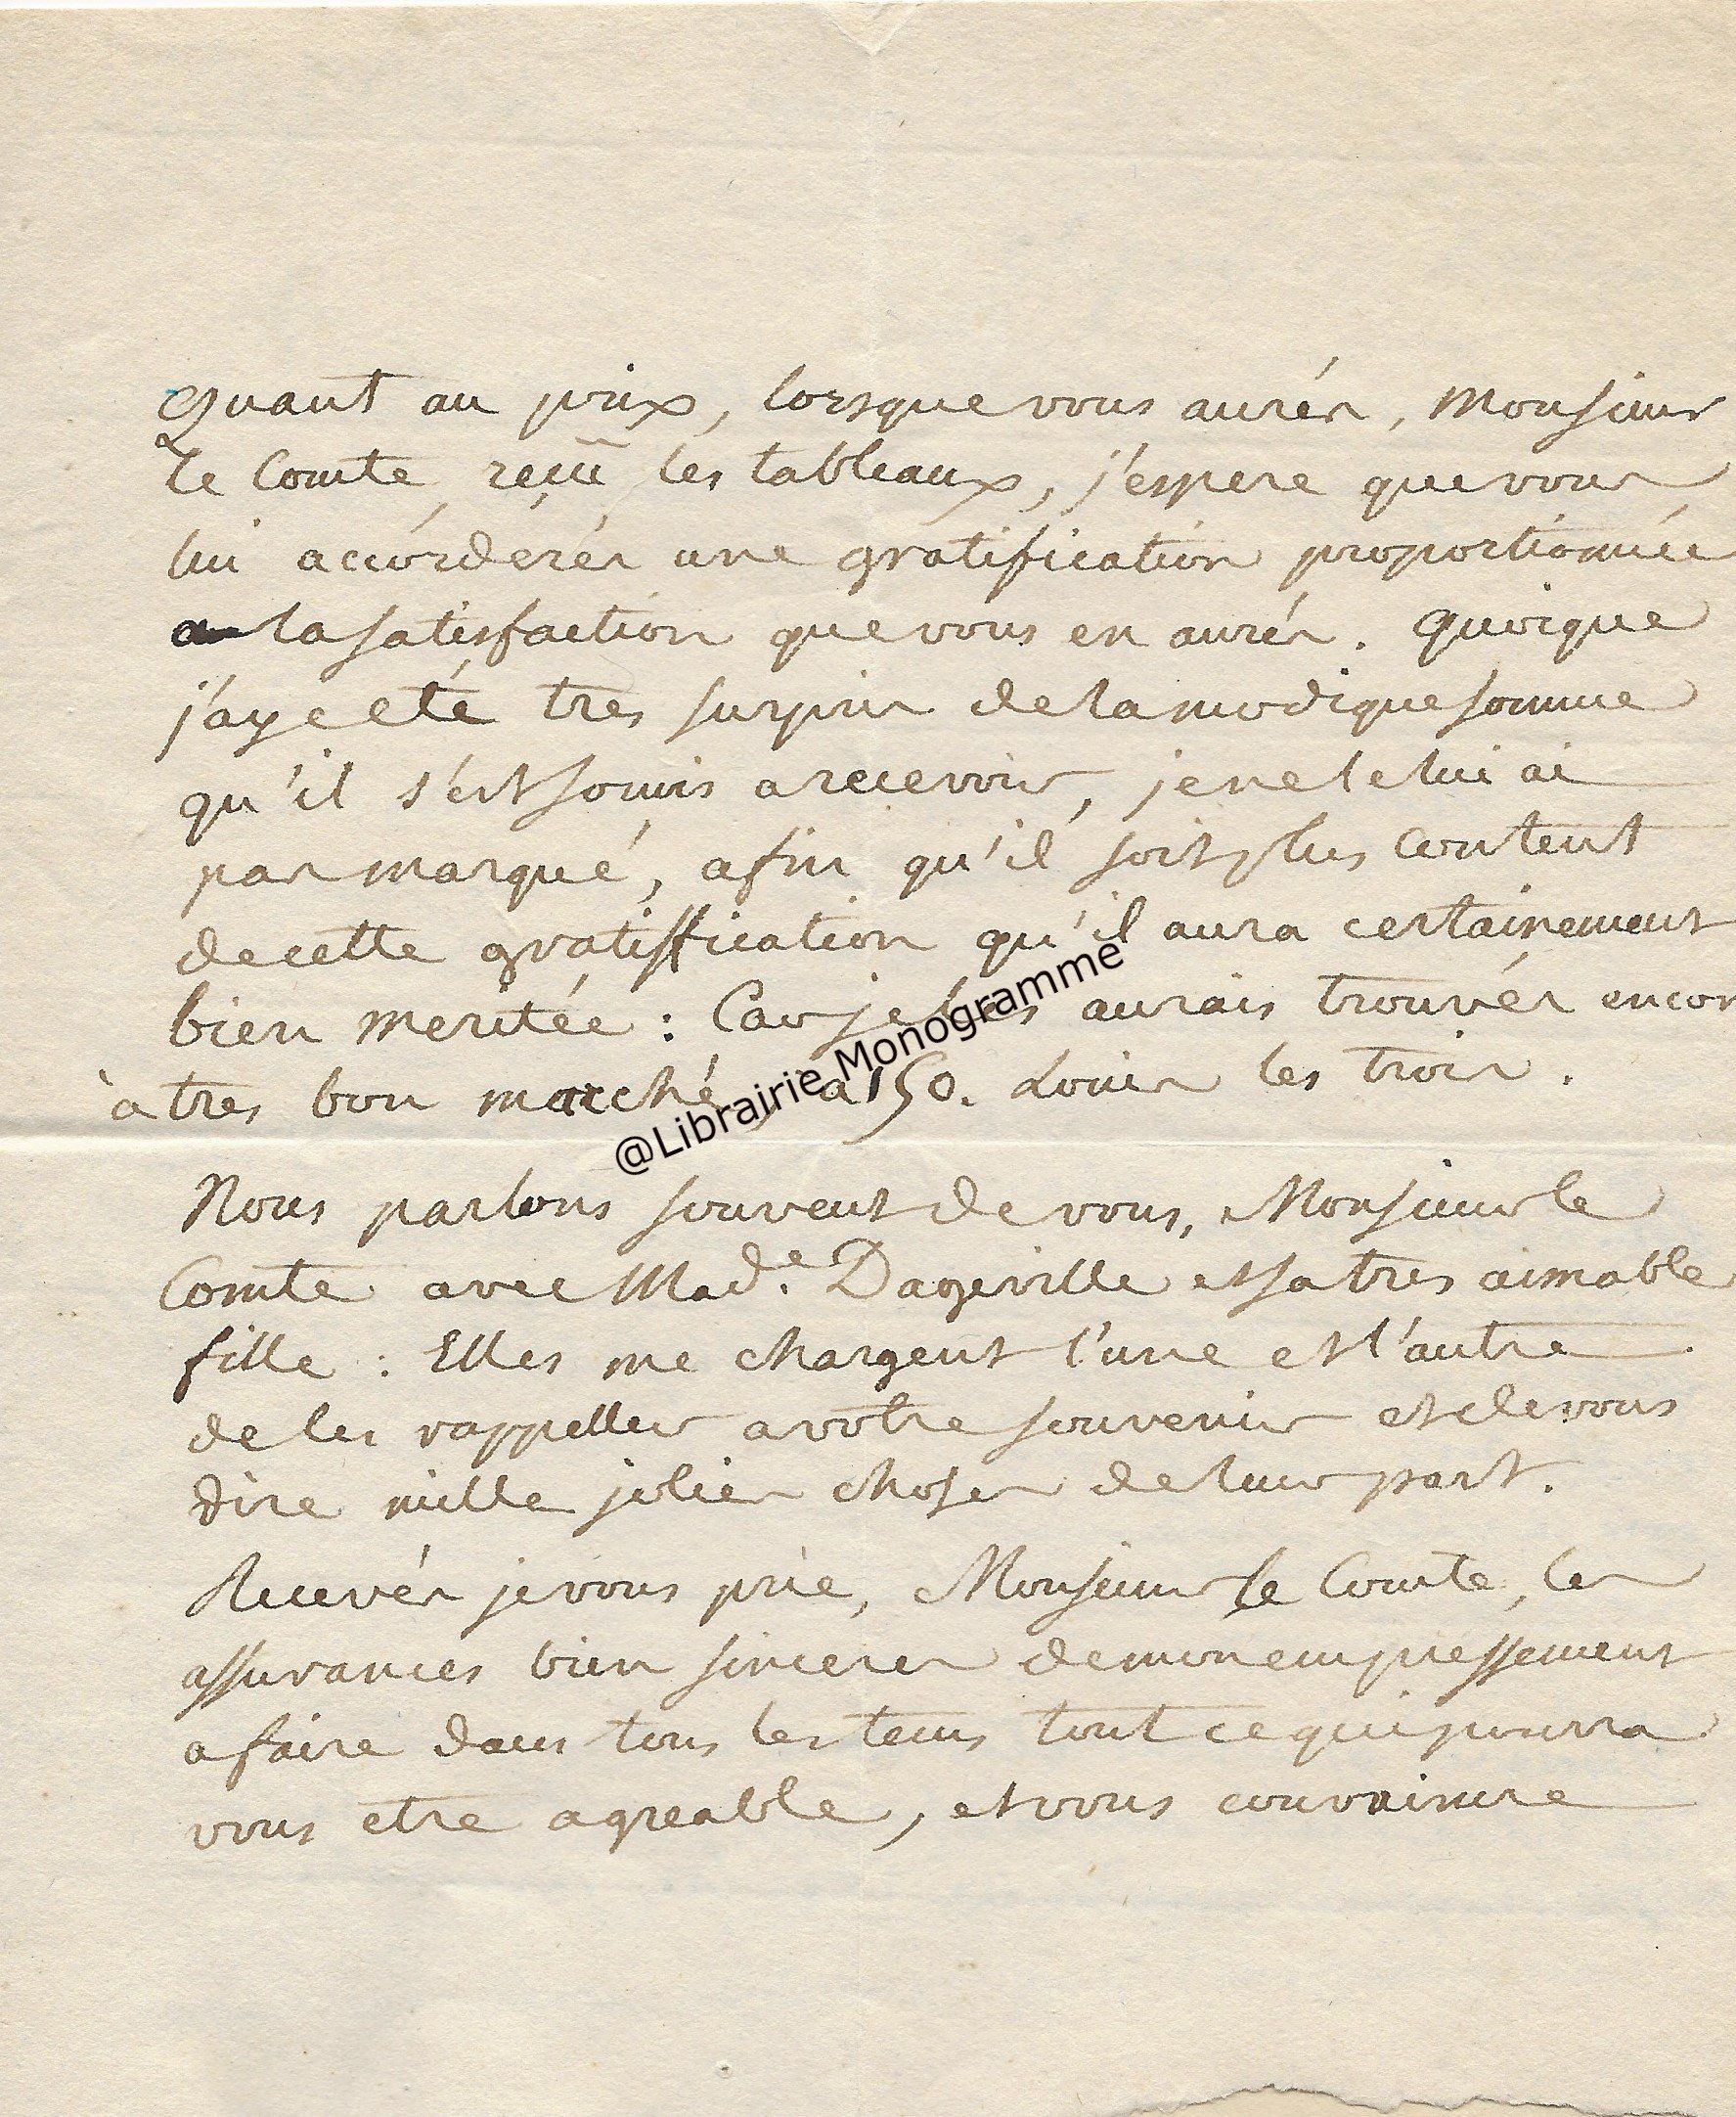 Quant au prix, lorsque vous aurés, Monsieur
le Comte, reçû les tableaux, j'espere que vous
lui accorderés une gratification proportionnée
a la satisfaction que vous en aurés. Quoique
j'aye eté tres surpris de la modique somme
qu'il s'est soumis a recevoir, je ne le lui ai
pas marqué, afin qu'il soit plus content
de cette gratiffication qu'il aura certainement
bien meritée : Car je les aurais trouvés encor
à tres bon marché, a 150. Louis les trois.
Nous parlons souvent de vous, Monsieur le
Comte avec Mad.e Dageville et sa tres aimable
fille : Elles me chargent l'une et l'autre
de les rappeller a votre souvenir et de vous
dire mille jolies choses de leur part.
Recevés je vous prie, Monsieur le Comte, les
assurances bien sinceres de mon empressement
a faire dans tous les tems tout ce qui pourra
vous etre agreable, et vous convaincre
@Librairie Monogramme